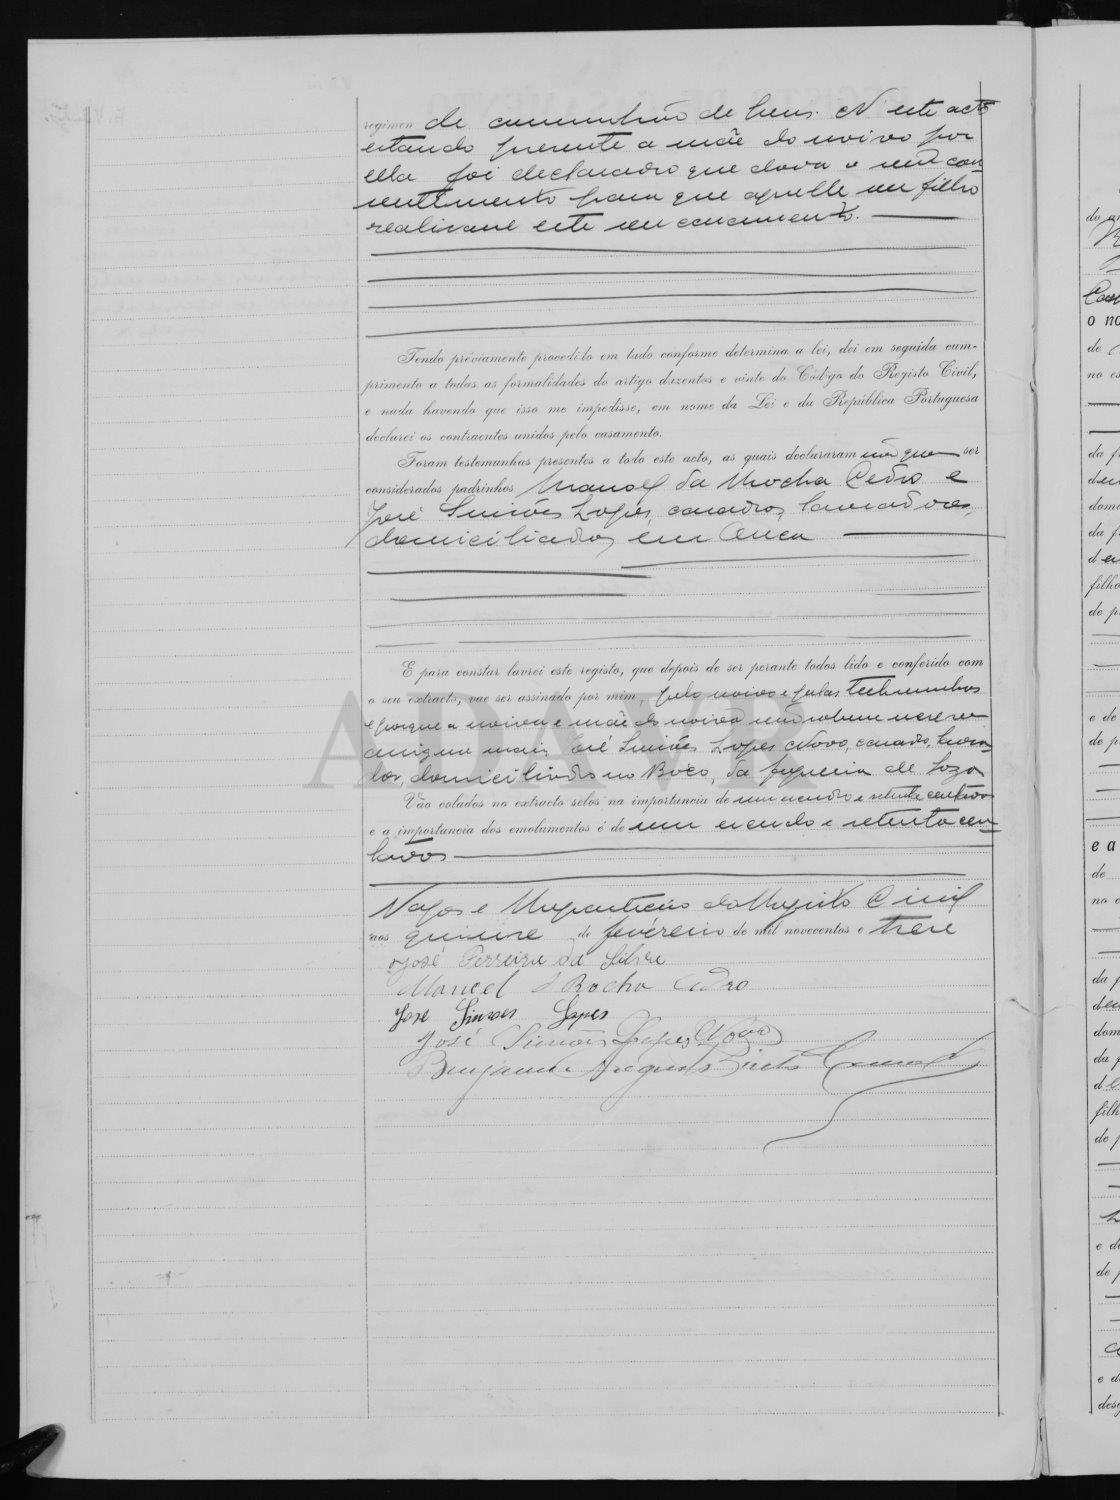 regimen de communhão de bens. N'este acto
estando presente a mãe do noivo por
ella foi declarado que dava o seu con-
sentimento para que aquelle seu filho
realisasse este seu casamento.
Tendo préviamente procedido em tudo conforme determina a lei, dei em seguida cum-
primento a todas as formalidades do artigo duzentos e vinte do Código do Registo Civil,
e nada havendo que isso me impedisse, em nome da Lei e da República Portuguesa
declarei os contraentes unidos pelo casamento.
Foram testemunhas presentes a todo este acto, as quais declararam não querer ser
considerados padrinhos Manoel da Rocha Cedro e
José Simões Lopes, casados, lavradores,
domiciliados em Ouca
E para constar lavrei este registo, que depois de ser perante todos lido e conferido com
o seu extracto, vae ser assinado por mim, pelo noivo e pelas testemunhas
e porque a noiva e mãe do noivo não sabem escrever
assigna mais José Simões Lopes Novo, casado, lavra-
dor, domiciliado no Boco, da freguesia de Soza
Vão colados no extracto selos na importancia de um escudo e setenta centavos
e a importancia dos emolumentos é de um escudo e setenta cen-
tavos
Vagos e Repartição do Registo Civil
aos quinze de fevereiro de mil novecentos e treze
José Ferreira da Silva
Manoel d Rocha Cedro
José Simoes Lopes
José Simões Lopes Novo
Benjamim Augusto
ADAVR
do
o no
de
no es
da f
dom
da f
filho
de p
e de
de p
e a
de
no e
da p
dom
da p
filh
de p
e de
de p
e d
des